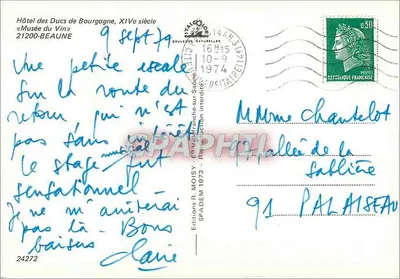 Hôtel des Ducs de Bourgogne, XIVe siècle
«Musée du Vin»
21200-BEAUNE
9 sept 74
Une petite escale
sur la route du
retour, qui n'est
pas sans intérêt
le stage musical fut
sensationnel -
je ne m'arrêterai
pas là - Bons
baisers Claire
24272
Editions R. MOISY
SPADEM 1973 - Reproduction interdite
16H15
10-9
1974
0,30
POSTES
REPUBLIQUE FRANCAISE
M Mme Chantelot
92 allée de la
Sablière
91 PALAISEAU